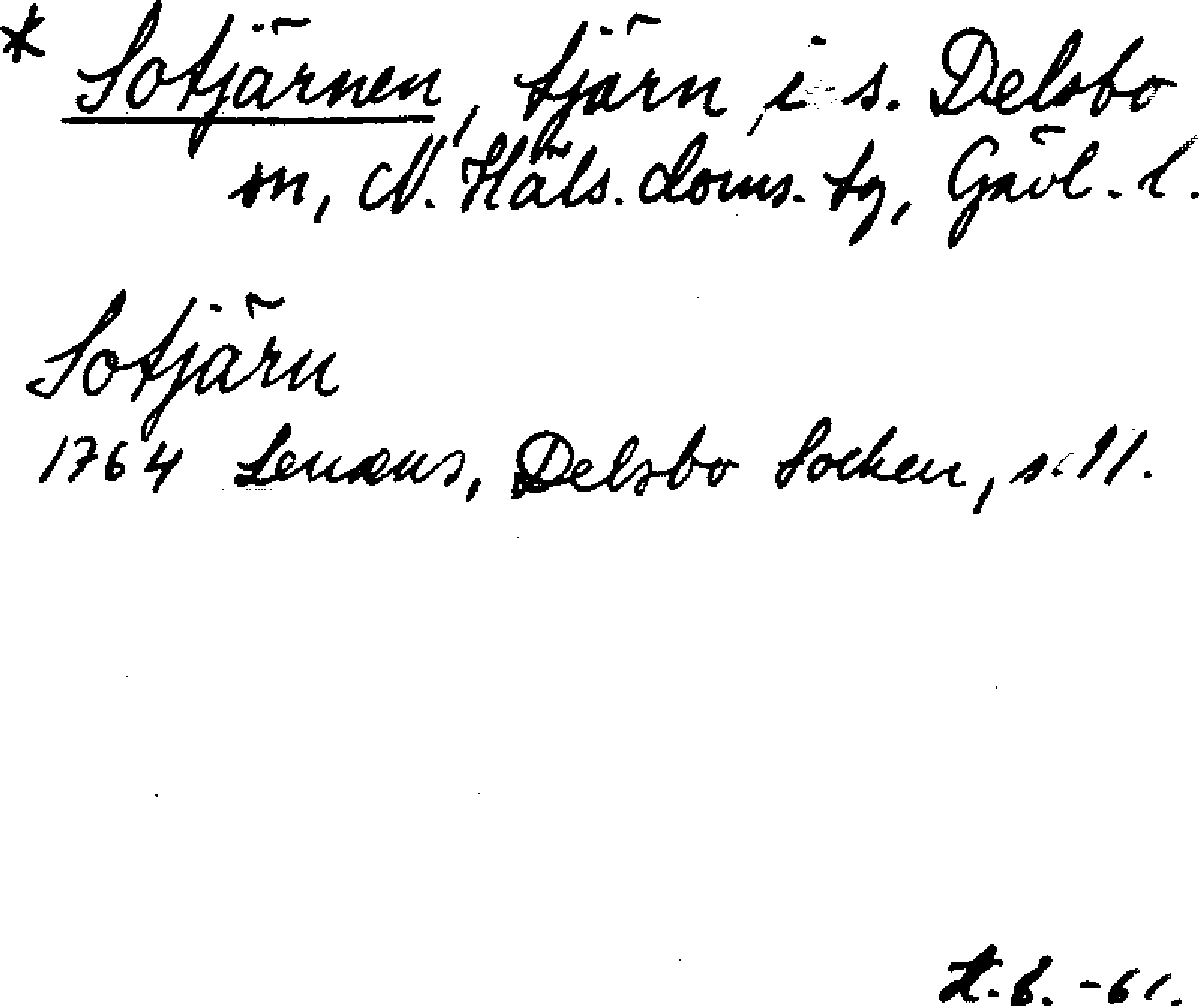 * Sotjärnen, tjärn i s. Delsbo
sn, N. Häls. doms. tg, Gävl. l.
Sotjärn
1764 Lenæus, Delsbo Socken, s. 11.
H. B. -61.